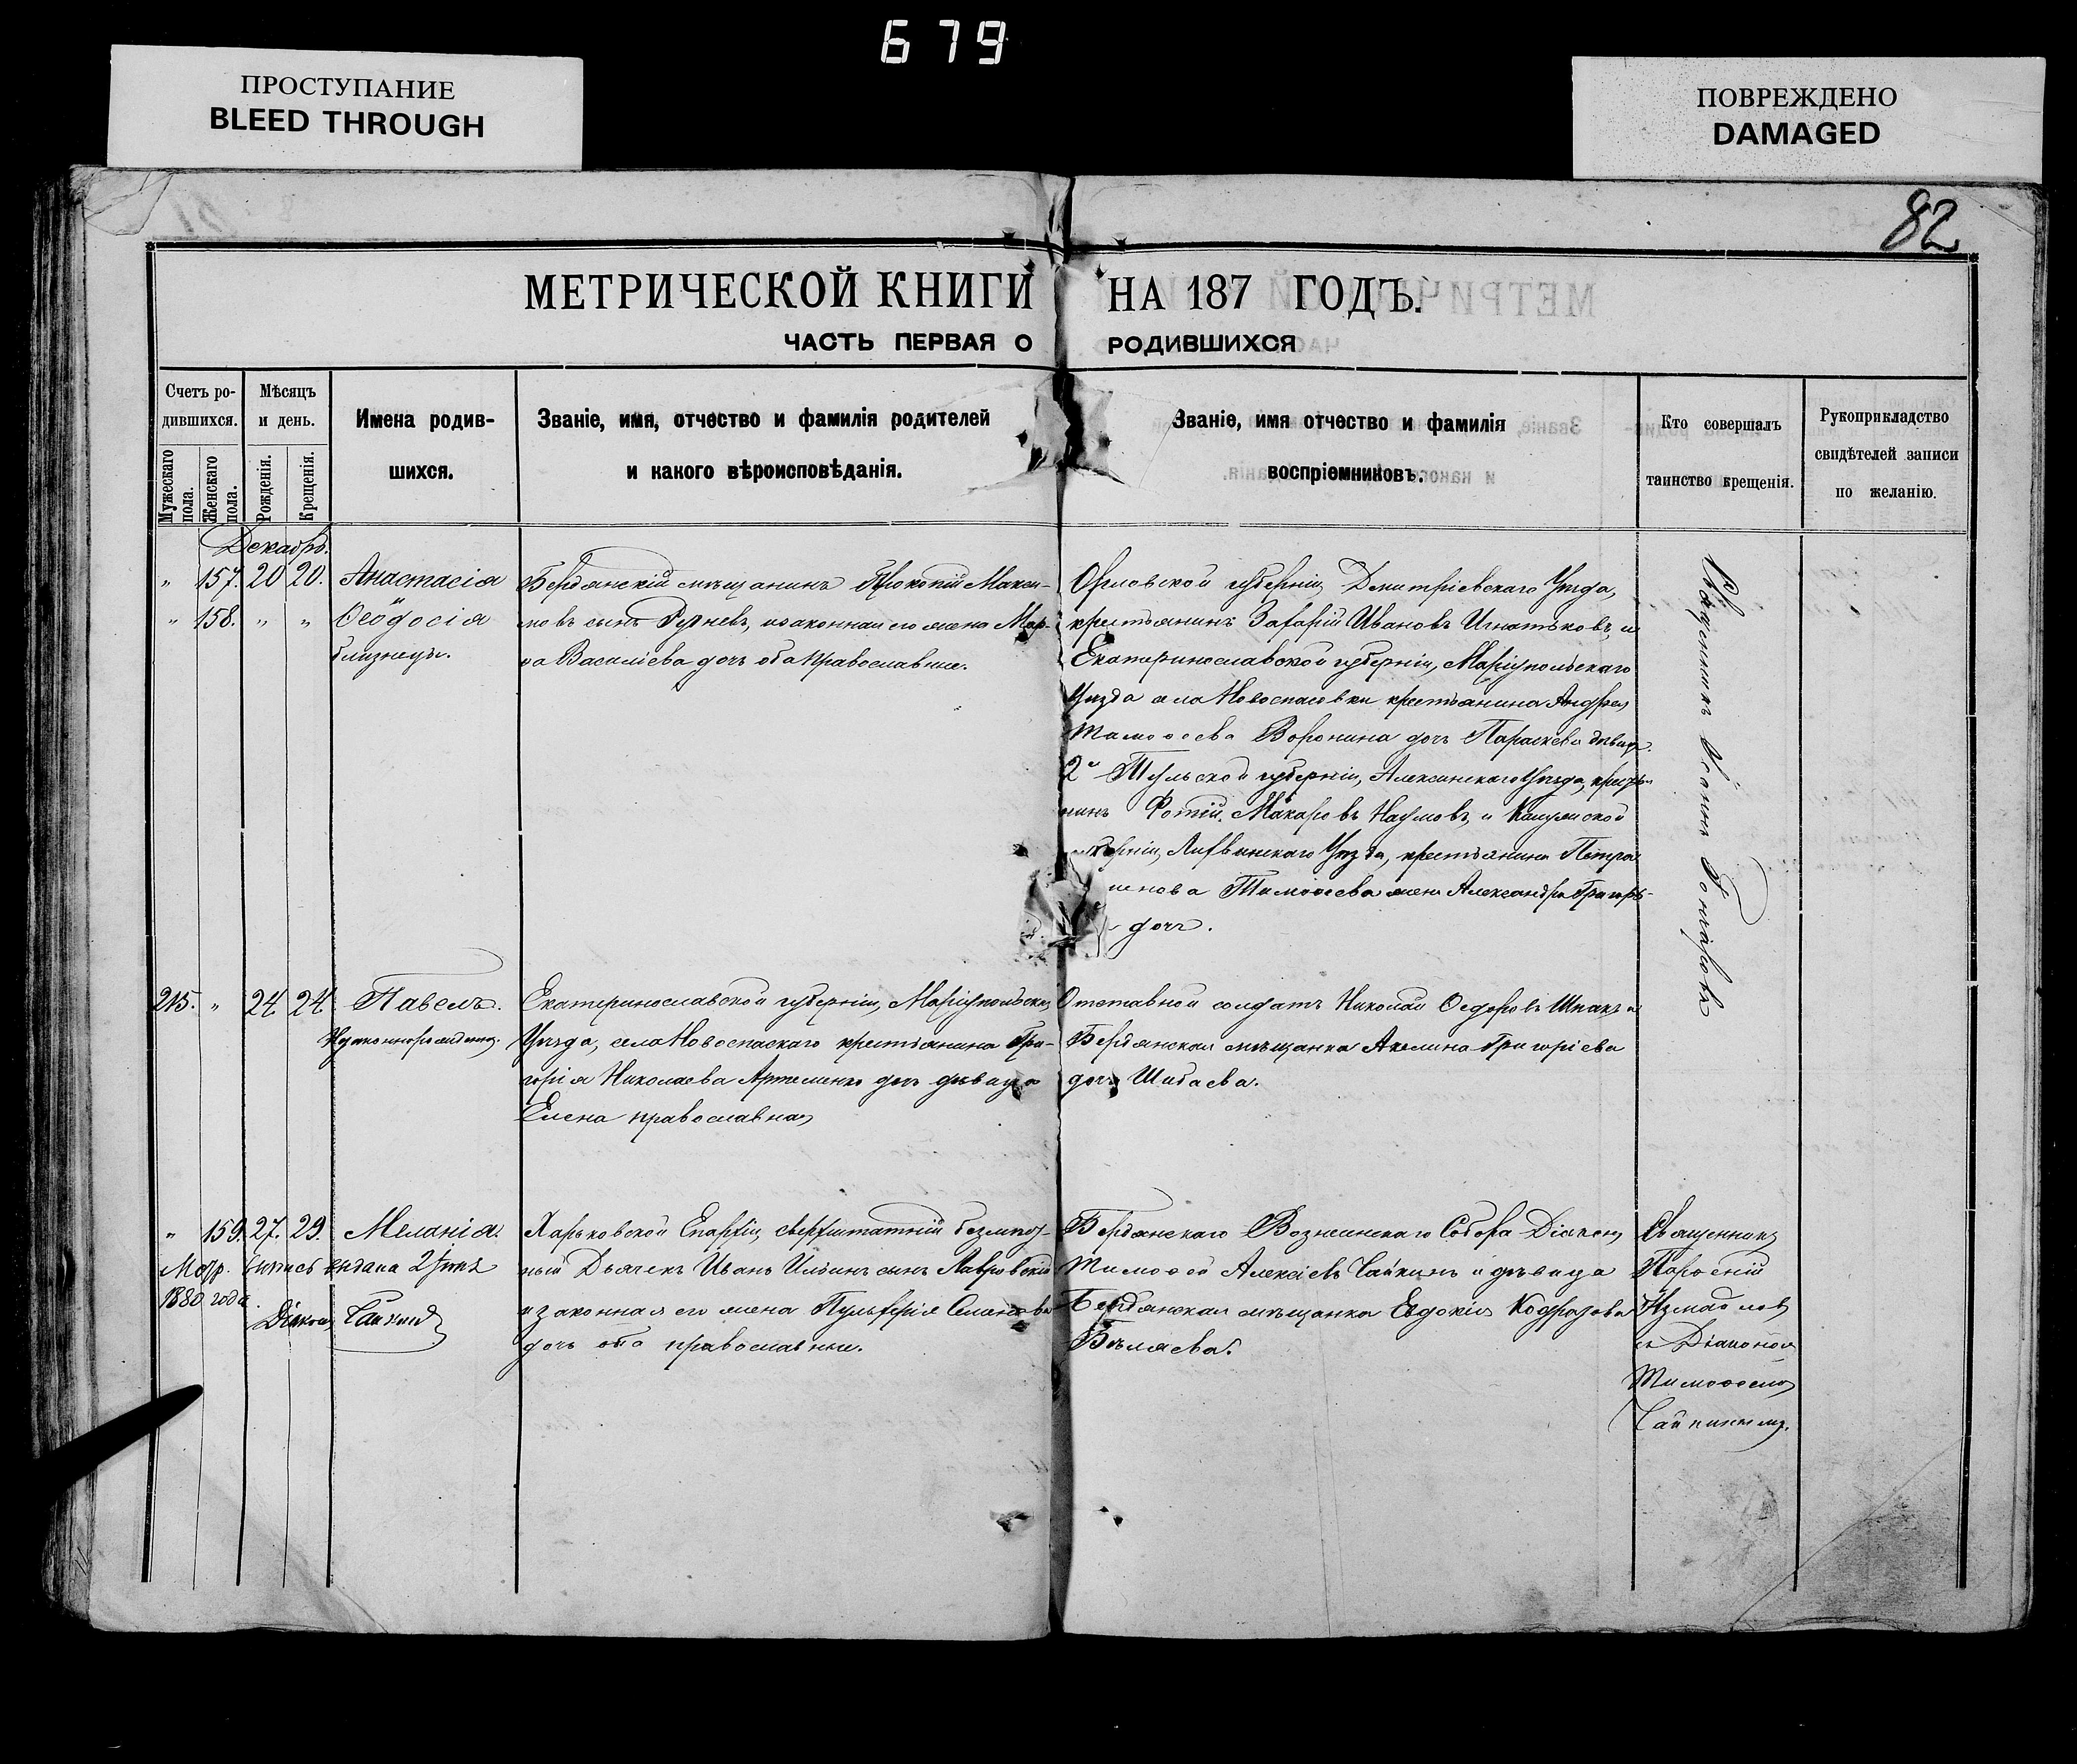 679
ПРОСТУПАНИЕ
BLEED THROUGH
ПОВРЕЖДЕНО
DAMAGED
82
МЕТРИЧЕСКОЙ КНИГИ НА 187 ГОДЪ.
ЧАСТЬ ПЕРВАЯ О РОДИВШИХСЯ
Счетъ ро-
дившихся.
Мужескаго пола.
Женскаго пола.
Мѣсяцъ
и день.
Рожденія.
Крещенія.
Имена родив-
шихся.
Званіе, имя, отчество и фамилія родителей
и какого вѣроисповѣданія.
Званіе, имя отчество и фамилія
воспріемниковъ.
Кто совершалъ
таинство крещенія.
Рукоприкладство
свидѣтелей записи
по желанію.
Декабрь.
" 157. 20 20. Анастасія
" 158. " " Ѳеодосія
близнецы.
Бердянскій мѣщанинъ Прокопій Макси-
мовъ сынъ и законная его жена Мар-
Василіева дочь оба православные.
Орловской губерніи, Дмитріевскаго Уѣзда,
крестьянинъ Захарій Ивановъ Игнатьковъ, и
Екатеринославской губерніи, Маріупольскаго
Уѣзда села Новоспасовки крестьянина Андрея
Тимоѳеева Воронина дочь Параскева дѣвица.
2й Тульской губерніи, Алексинскаго Уѣзда, крестья-
нинъ Фотій Макаровъ Наумовъ, и Калужской
губерніи, Лихвинскаго Уѣзда, крестьянина Петра
Тимоѳеева жена Александра Григорь-
дочь.
Священникъ Іоаннъ Гончаровъ
215. " 24. 24. Павелъ.
Незаконнорожденный.
Екатеринославской губерніи, Маріупольскаго
Уѣзда, села Новоспаскаго крестьянина Гри-
горія Николаева Артеменко дочь дѣвица
Елена православная
Отставной солдатъ Николай Ѳедоровъ Шпакъ и
Бердянская мѣщанка Акилина Григоріева
дочь Шибаева.
" 159. 27. 29. Меланія.
Метр. выпись выдана 2 Іюня
1880 года
Діаконъ Чайкинъ
Харьковской Епархіи, сверхштатный безмѣст-
ный Дьячекъ Иванъ Ильинъ сынъ Лавровскій
и законная его жена Пульхерія Семенова
дочь оба православные.
Бердянскаго Вознесенскаго Собора Діаконъ
Тимоѳей Алексіевъ Чайкинъ и дѣвица
Бердянская мѣщанка Евдокія Кодратова
Бѣляева.
Священникъ
Парѳеній
Измайловъ
съ Діакономъ
Тимоѳеемъ
Чайкинымъ.